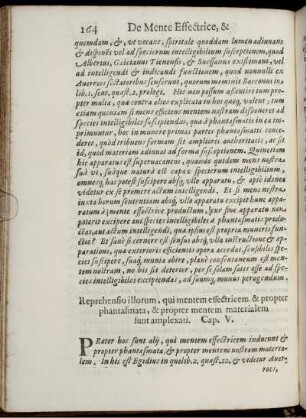 164 De Mente Effectrice, &
quemdam, &, vt vocant, spiritale quoddam lumen adiuuans
& disponens vel ad speciorum intelligibilium susceptionem, quod
Albertus, Gaietanus Tienensis, & Suessanus existimant, vel
ad intelligendi & indicandi functionem, quod nonnulli ex
Auerrois sectatoribus senserunt, quorum meminit Bacconus in
lib. 1. sent. quæst. 2. prologi. His non possum assentiri tum pro
pter multa, quæ contra alios explicata in hos quoq, valent; tum
etiam quoniam si mens efficiens mentem nostram disponeret ad
species intelligibiles suscipiendas, quæ à phantasmatis in ea im
primuntur, hoc in munere primas partes phantasmatis conce
deret, quod tribuens formam sit amplioris authoritatis, ac is
id, quod materiam adiuuat ad formæ susceptionem. Quinetiam
hic apparatus est superuacaneus, quando quidem mens nostra
sua vi, suaque natura est capax specierum intelligibilium,
omneq, has potest suscipere absq, vllo apparatu, & apte idonea
videtur ex se promere actum intelligendi. Et si mens nostra
iuxta horum sententiam absq, vllo apparatu excipit hunc appa
ratum à mente effectrice productum, cur sine apparatu non
poterit excipere aut species intelligibiles à phantasmatis produ
ctas, aut actum intelligendi, qua ipsius est propria muneris fun
ctio? Et sanè si cerneret est sensus absq, vlla instructione & ap-
paratione, qua exterioris efficientis opera accedat, sensibiles spe
cies suscipere, suaq, munia obire, planè consentaneum est men
tem nostram, ne his sit deterior, per se solam satis esse ad spe
cies intelligibiles excipiendas, ad suumq, munus peragendum.
Reprehensio illorum, qui mentem effectricem & propter
phantasmata, & propter mentem materialem
sunt amplexati. Cap. V.
PRæter hos sunt alij, qui mentem effectricem inducunt &
propter phantasmata, & propter mentem nostram materia-
lem. In his est Egidius in quolib. 2. quæst. 22. & videtur Auer-
rois,